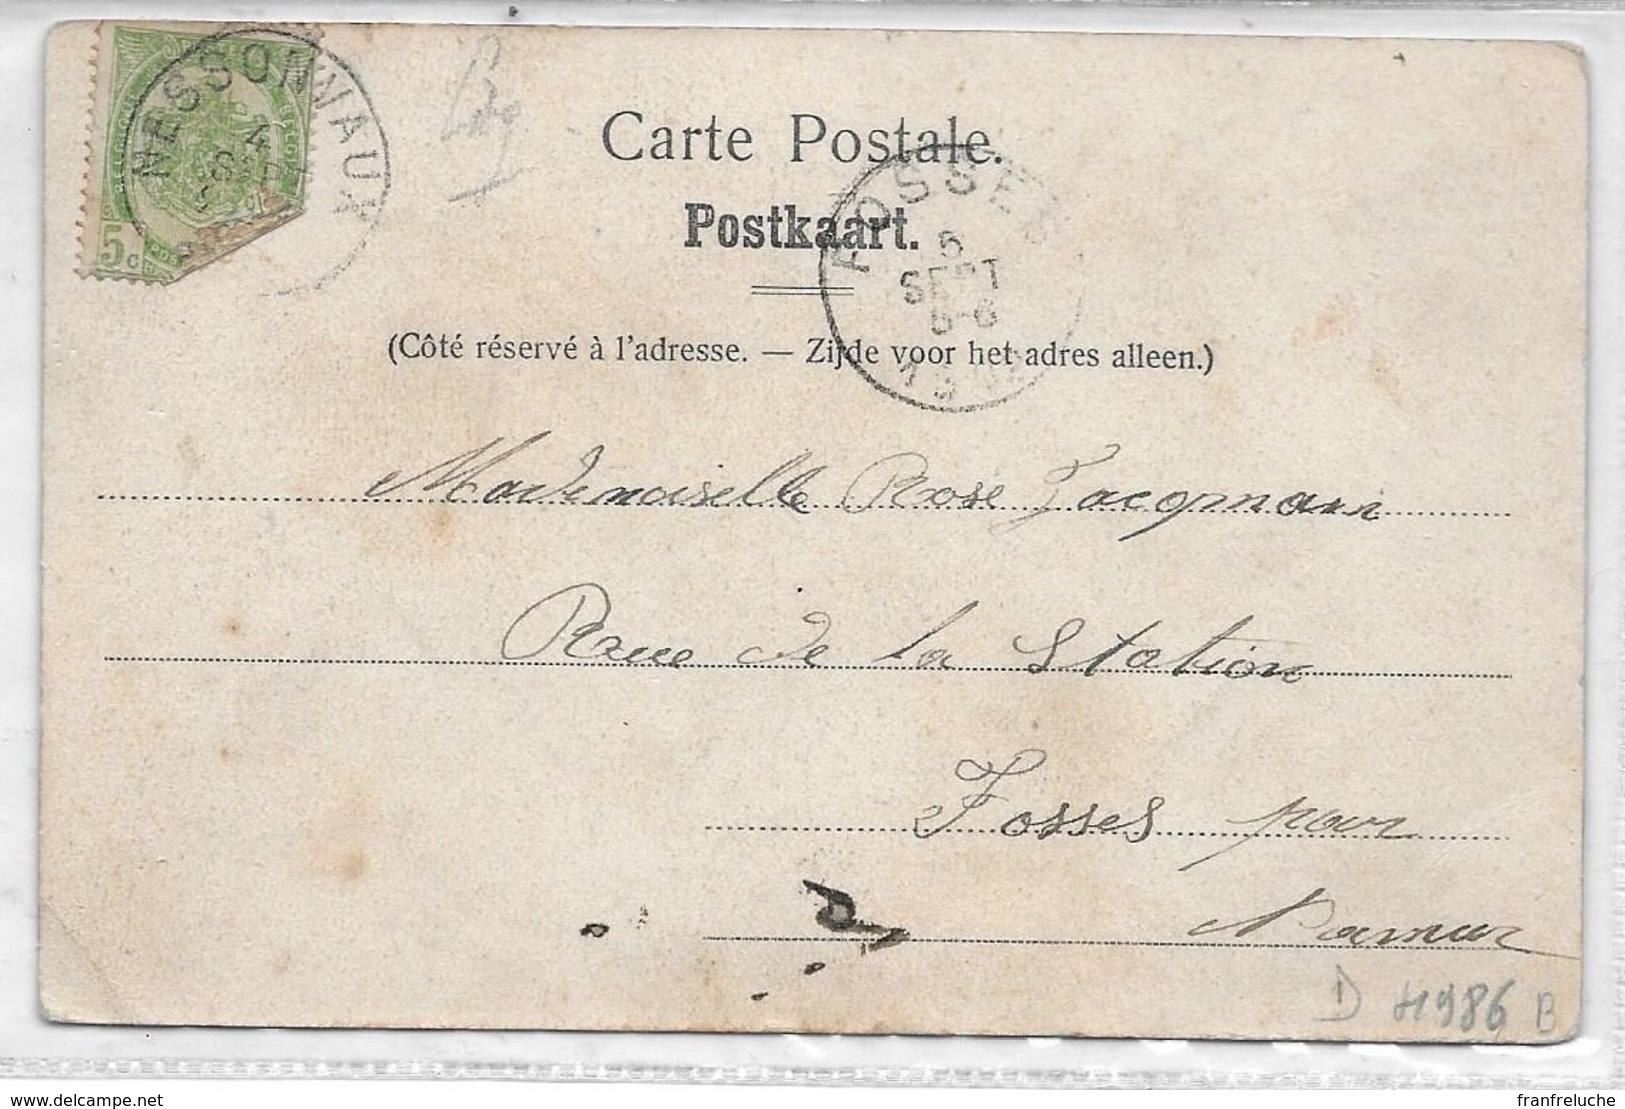 NESSONVAUX
4
SEPT
5 c
Carte Postale.
Postkaart.
FOSSES
5
SEPT
5-6
(Côté réservé à l'adresse. — Zijde voor het adres alleen.)
Mademoiselle Rose Jacqmain
Rue de la Station
Fosses par
Namur
D 41986 B
delcampe.net
franfreluche